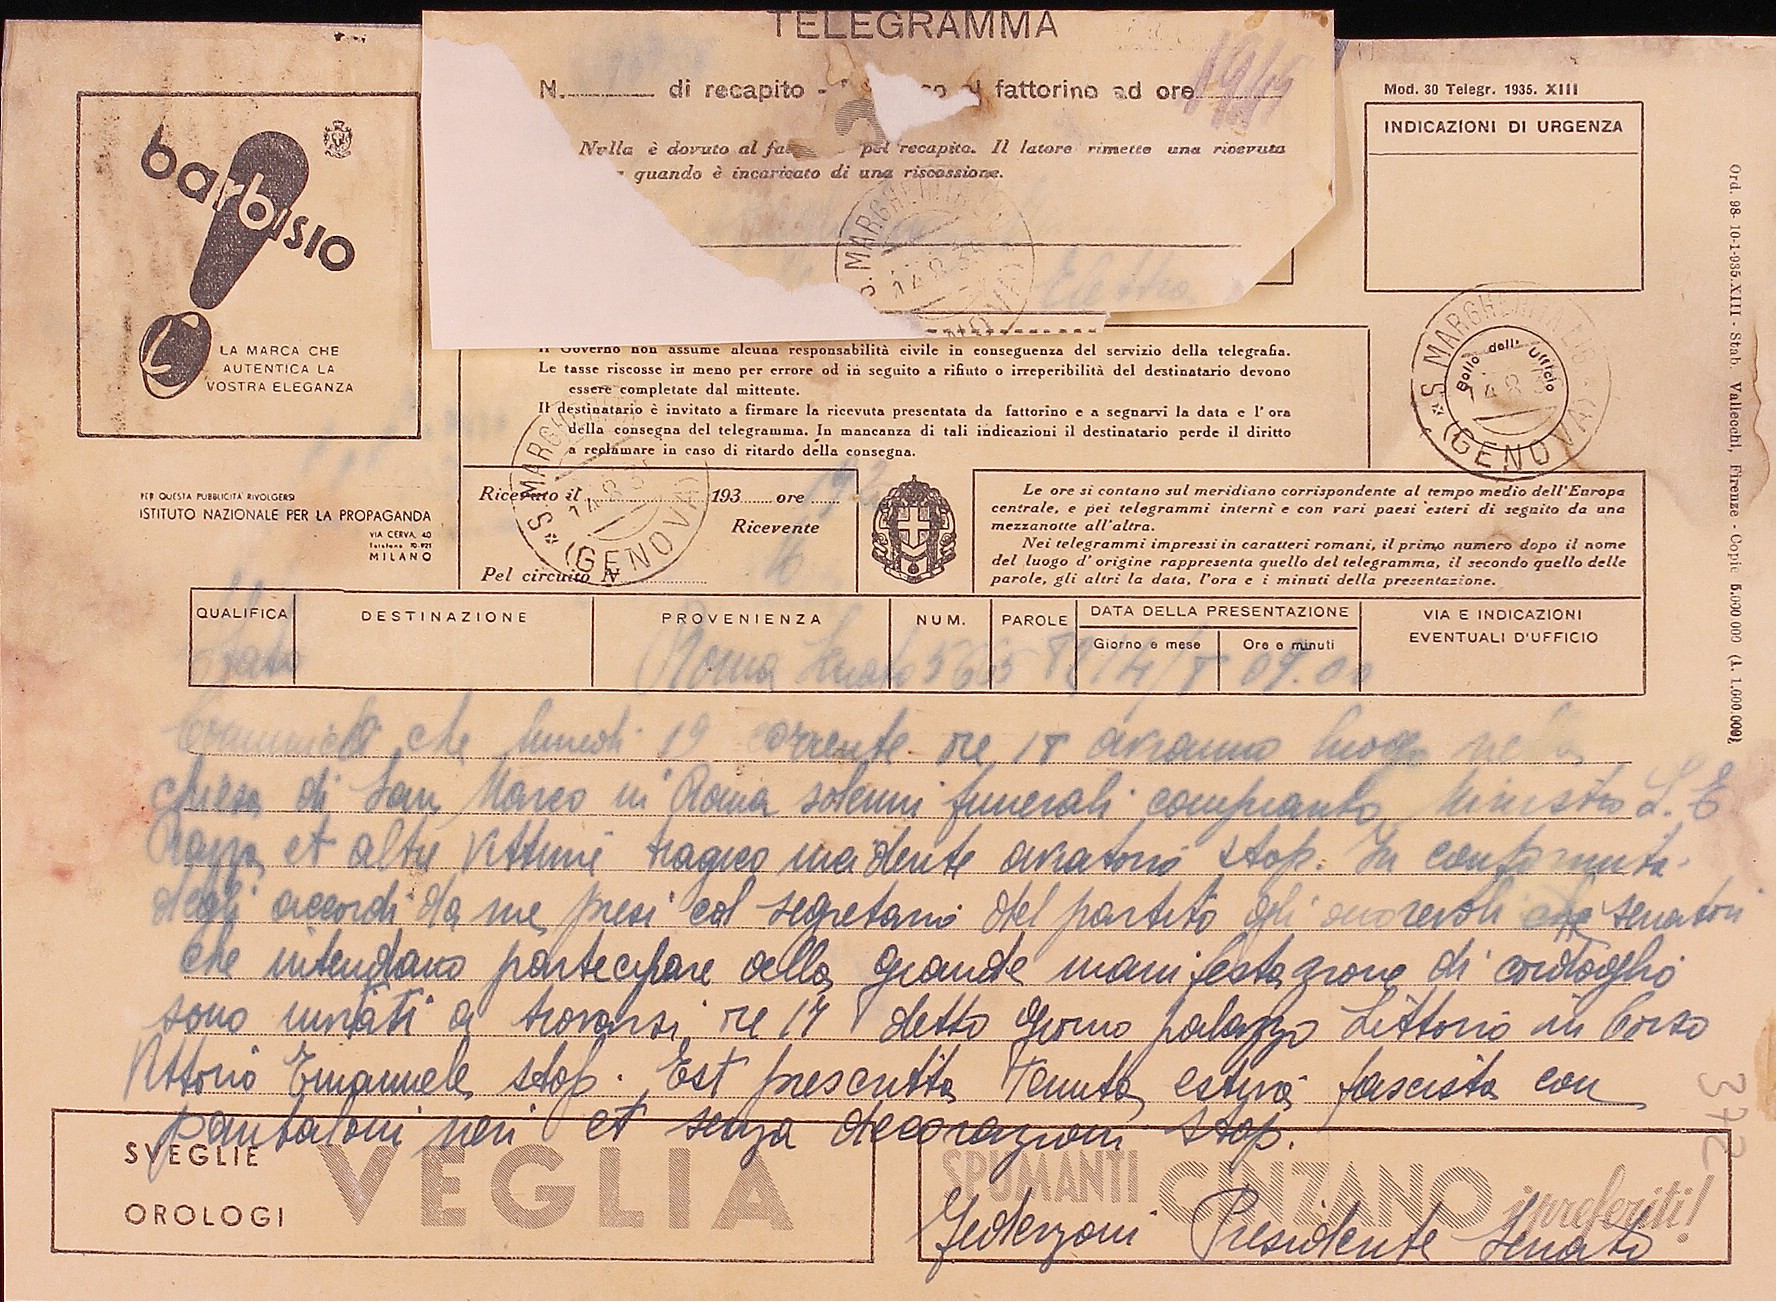 TELEGRAMMA
N. di recapito - al fattorino ad ore
Nulla è dovuto al pel recapito. Il latore rimette una ricevuta
quando è incaricato di una riscossione.
S. MARGHERITA
14.8.35
barbisio
LA MARCA CHE
AUTENTICA LA
VOSTRA ELEGANZA
Mod. 30 Telegr. 1935. XIII
INDICAZIONI DI URGENZA
Ord. 98- 10-1-935.XIII - Stab. Vallecchi, Firenze - Copie 5.000 000 (1. 1.000.000)
S. MARGHERITA LIG.
Bollo dell' Ufficio
14 8
(GENOVA)
Il Governo non assume alcuna responsabilità civile in conseguenza del servizio della telegrafia.
Le tasse riscosse in meno per errore od in seguito a rifiuto o irreperibilità del destinatario devono
essere completate dal mittente.
Il destinatario è invitato a firmare la ricevuta presentata da fattorino e a segnarvi la data e l'ora
della consegna del telegramma. In mancanza di tali indicazioni il destinatario perde il diritto
a reclamare in caso di ritardo della consegna.
PER QUESTA PUBBLICITÀ RIVOLGERSI
ISTITUTO NAZIONALE PER LA PROPAGANDA
VIA CERVA, 40
Telefono 70-921
MILANO
Ricevuto il 193 ore
Ricevente
Pel circuito N
S. MARGHERITA
14.8.35
(GENOVA)
Le ore si contano sul meridiano corrispondente al tempo medio dell'Europa
centrale, e pei telegrammi interni e con vari paesi esteri di seguito da una
mezzanotte all'altra.
Nei telegrammi impressi in caratteri romani, il primo numero dopo il nome
del luogo d'origine rappresenta quello del telegramma, il secondo quello delle
parole, gli altri la data, l'ora e i minuti della presentazione.
QUALIFICA DESTINAZIONE PROVENIENZA NUM. PAROLE DATA DELLA PRESENTAZIONE VIA E INDICAZIONI
Giorno e mese Ore e minuti EVENTUALI D'UFFICIO
Stato Roma Senato 565 14/8 09.00
Comunico che lunedi 19 corrente ore 18 avranno luogo nella
chiesa di San Marco in Roma solenni funerali compianto Ministro S. E
Razza et altre vittime tragico incidente aviatorio stop. In conformità
degli accordi da me presi col segretario del partito gli onorevoli senatori
che intendano partecipare alla grande manifestazione di cordoglio
sono invitati a trovarsi ore 17 detto giorno palazzo Littorio in Corso
Vittorio Emanuele stop. Est prescritta tenuta estiva fascista con
pantaloni neri et senza decorazioni stop.
372
SVEGLIE
OROLOGI
VEGLIA
SPUMANTI CINZANO i preferiti!
Federzoni Presidente Senato